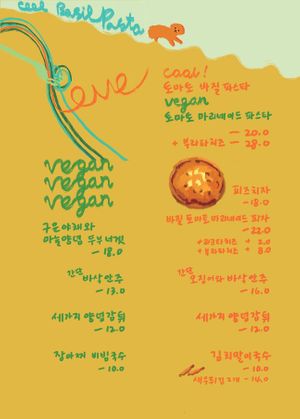 Cool Basil Pasta
eve
cool!
토마토 바질 파스타
vegan
토마토 마리네이드 파스타
- 20.0
+ 부라타치즈 - 28.0
vegan
vegan
vegan
구운야채와
마늘양념 두부너겟
- 18.0
간단 바삭안주
- 13.0
세가지 양념감튀
- 12.0
장아찌 비빔국수
- 10.0
피즈치자
- 18.0
바질 토마토 마리네이드 피자
- 22.0
+ 리코타치즈 + 2.0
+ 부라타치즈 + 8.0
간단 오징어와 바삭안주
- 16.0
세가지 양념감튀
- 12.0
김치말이국수
- 10.0
새우튀김 2개 - 14.0